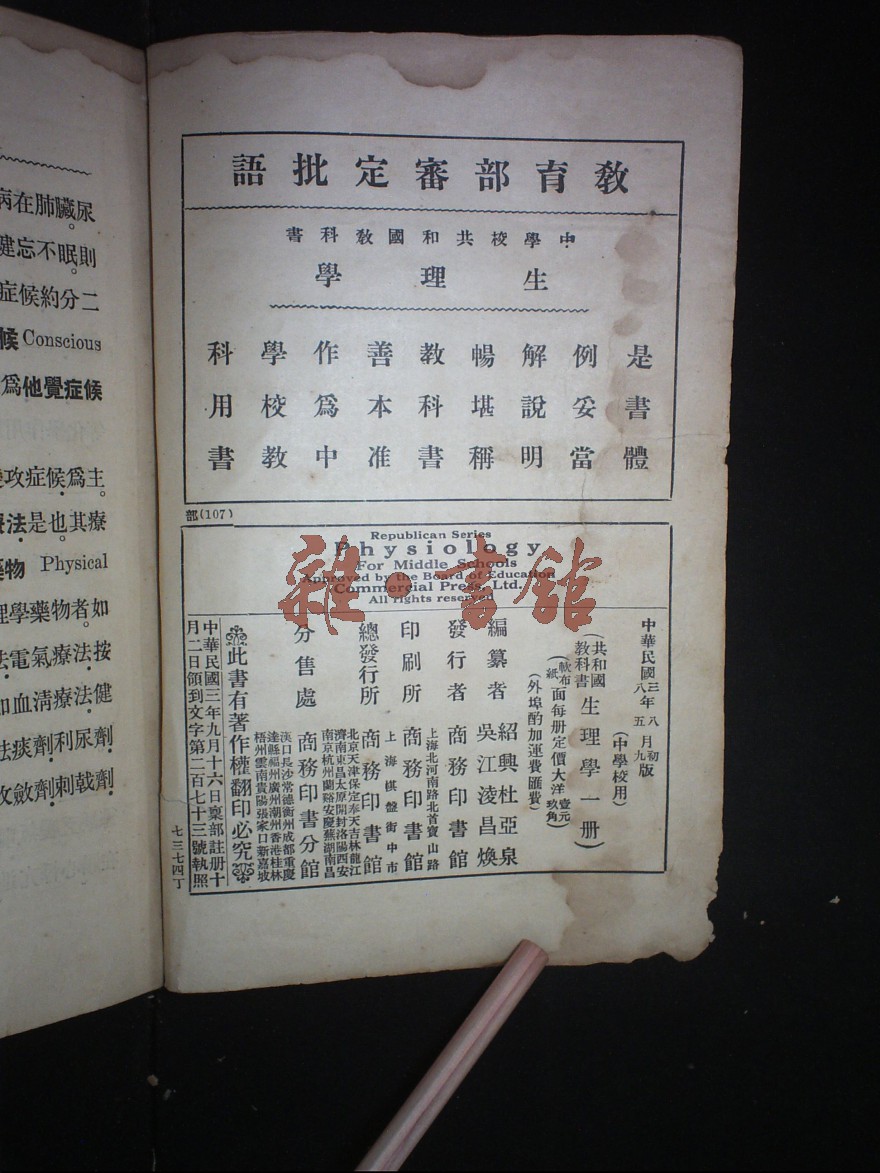 教育部審定批語
中學校共和國教科書
生理學
是書體
例妥當
解說明
暢堪稱
教科書
善本准
作爲中
學校教
科用書
部(107)
Republican Series
Physiology
For Middle Schools
Approved by the Board of Education
Commercial Press, Ltd.
All rights reserved
雜·書館
中華民國三年八月初版
八年五月九版
(中學校用)
(共和國教科書生理學一册)
(軟布面每册定價大洋壹元)
(紙面每册定價大洋玖角)
(外埠酌加運費匯費)
編纂者 紹興杜亞泉
吳江淩昌煥
發行者 商務印書館
上海北河南路北首寶山路
印刷所 商務印書館
上海棋盤街中市
總發行所 商務印書館
北京天津保定奉天吉林龍江
濟南東昌太原開封洛陽西安
南京杭州蘭谿安慶蕪湖南昌
分售處 商務印書分館
漢口長沙常德衡州成都重慶
達縣福州廣州潮州香港桂林
梧州雲南貴陽張家口新嘉坡
此書有著作權翻印必究
中華民國三年九月十六日稟部註册十
月二日領到文字第二百七十三號執照
七三七四丁
病在肺臟尿。
健忘不眠。則
症候約分二
候Conscious
爲他覺症候
攻症候爲主。
療法是也。其療
藥物 Physical
理學藥物者。如
法電氣療法按
如血清療法健
法痰劑利尿劑
收斂劑刺戟劑